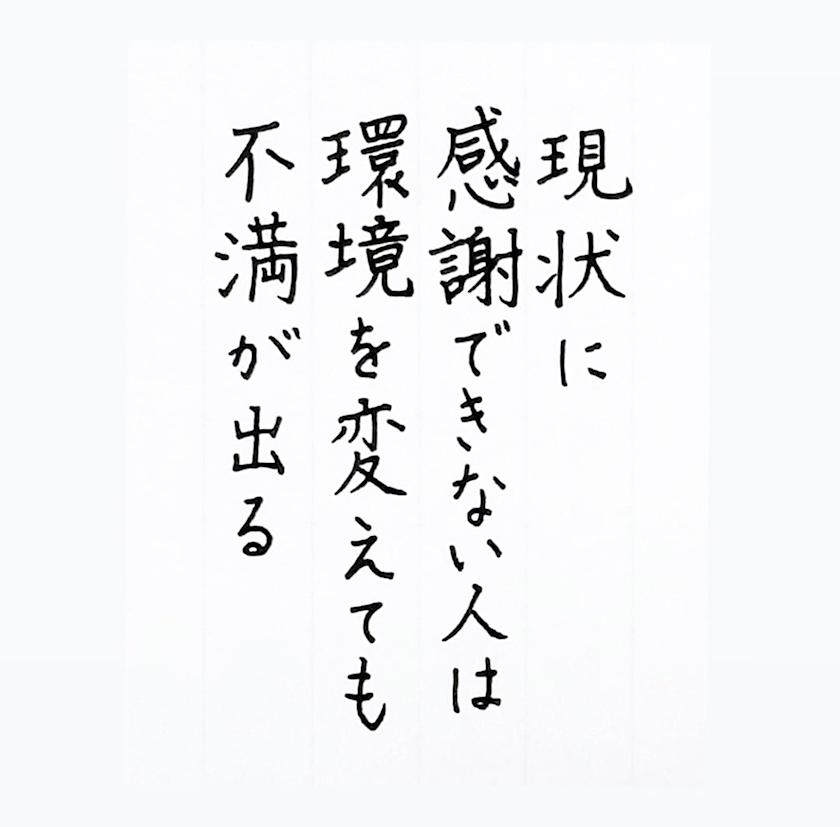 現状に
感謝できない人は
環境を変えても
不満が出る